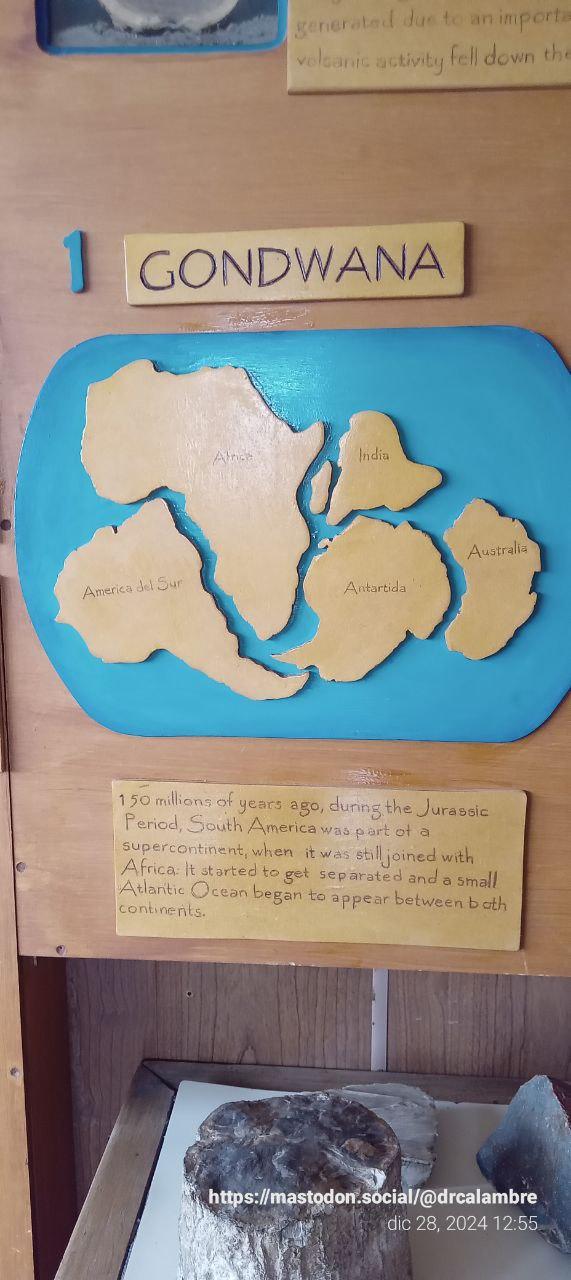 generated due to an importa
volcanic activity fell down the
1
GONDWANA
Africa
India
Australia
America del Sur
Antartida
150 millions of years ago, during the Jurassic
Period, South America was part of a
supercontinent, when it was still joined with
Africa. It started to get separated and a small
Atlantic Ocean began to appear between both
continents.
https://mastodon.social/@drcalambre
dic 28, 2024 12:55